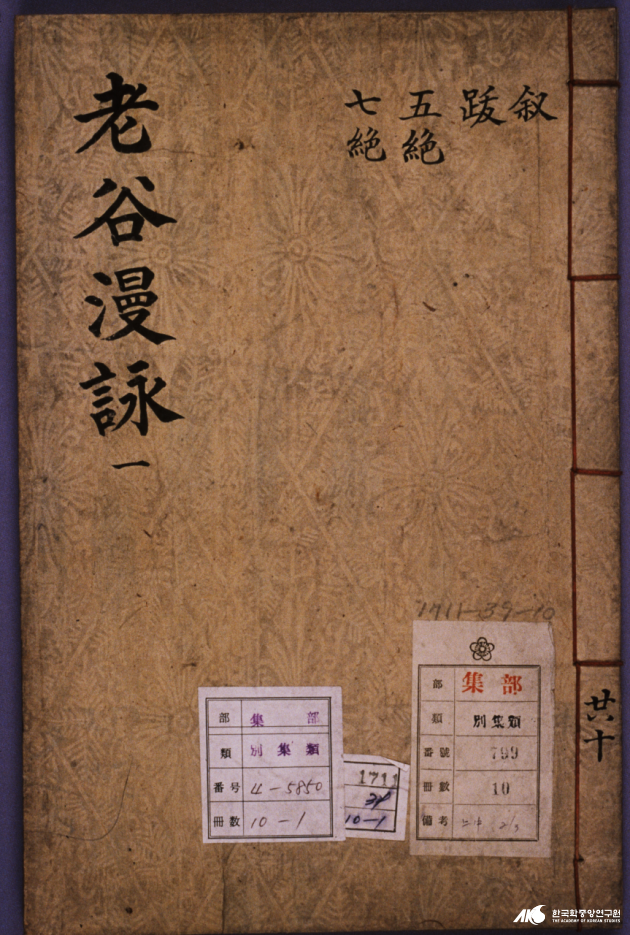 叙
跋
五絶
七絶
老谷漫詠 一
1711-39-10
部 集部
類 別集類
番號 799
冊數 10
備考
部 集部
類 別集類
番号 4-5850
冊数 10-1
1711
10-1
共十
한국학중앙연구원
THE ACADEMY OF KOREAN STUDIES